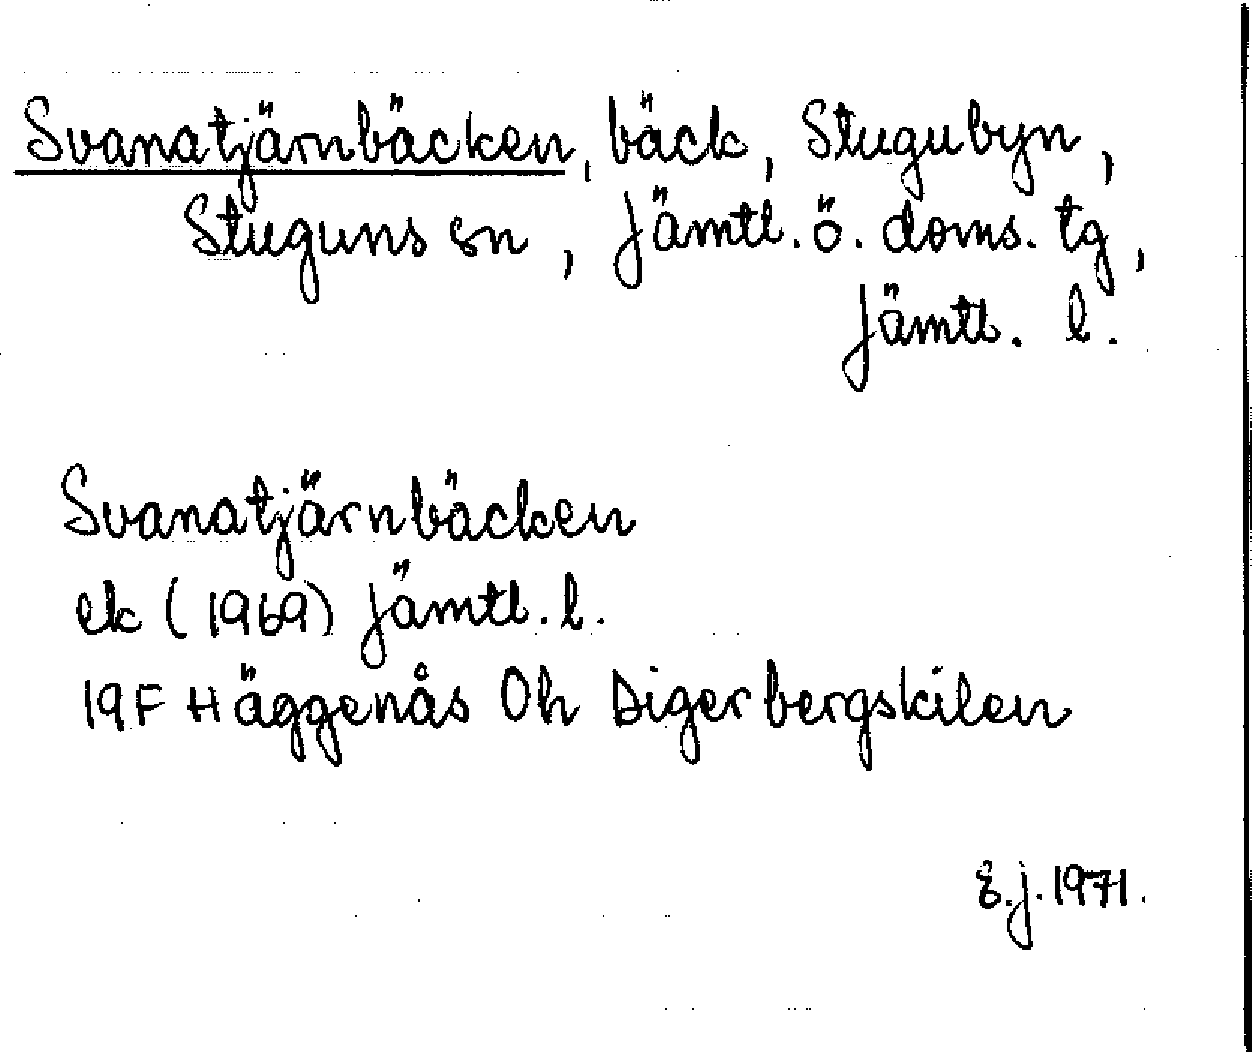 Svanatjärnbäcken, bäck, Stugubyn,
Stuguns sn, Jämtl. ö. doms. tg,
Jämtl. l.
Svanatjärnbäcken
ek (1969) Jämtl. l.
19F Häggenås Oh Digerbergskilen
E.J. 1971.